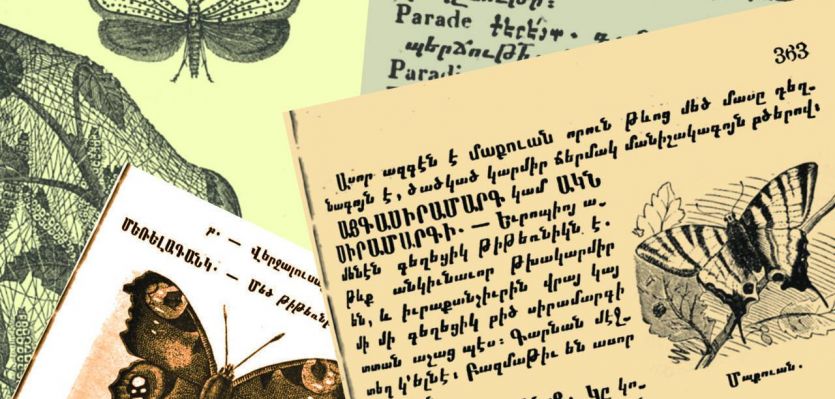 Parade
Parad
363
Ասոր ազգէն է մաքուան որուն թևոց մեծ մասը դեղ-
նագոյն է, ծածկած կարմիր ճերմակ մանիշակագոյն բծերով։
ԱՅԳԱՍԻՐԱՄԱՐԳ կամ ԱԿՆ
ՍԻՐԱՄԱՐԳԻ. — Եւրոպիոյ ա-
մենէն գեղեցիկ թիթեռնիկն է.
թևք անկիւնաւոր թխակարմիր
են, և իւրաքանչիւրին վրայ կայ
մի մի գեղեցիկ բիծ սիրամարգի
ոտան աչաց պէս։ Գարնան մէջ-
տեղ կ՚ելնէ։ Բազմաթիւ են ասոր
Կը կո-
Մաքուան.
ր. — Վերջալուսա
ՄԵՌԵԼԱԳԱՆԿ. — Մեծ թիթեռնի